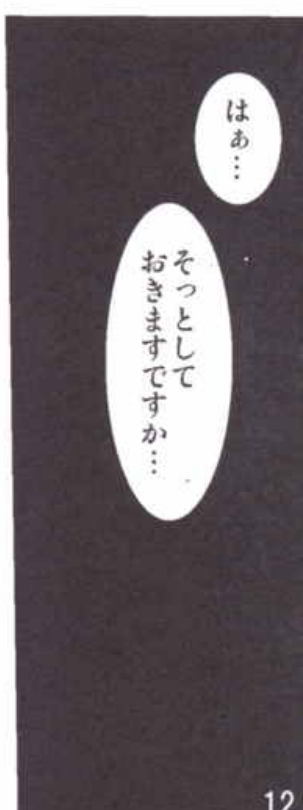 はぁ…
そっとして
おきますですか…
12